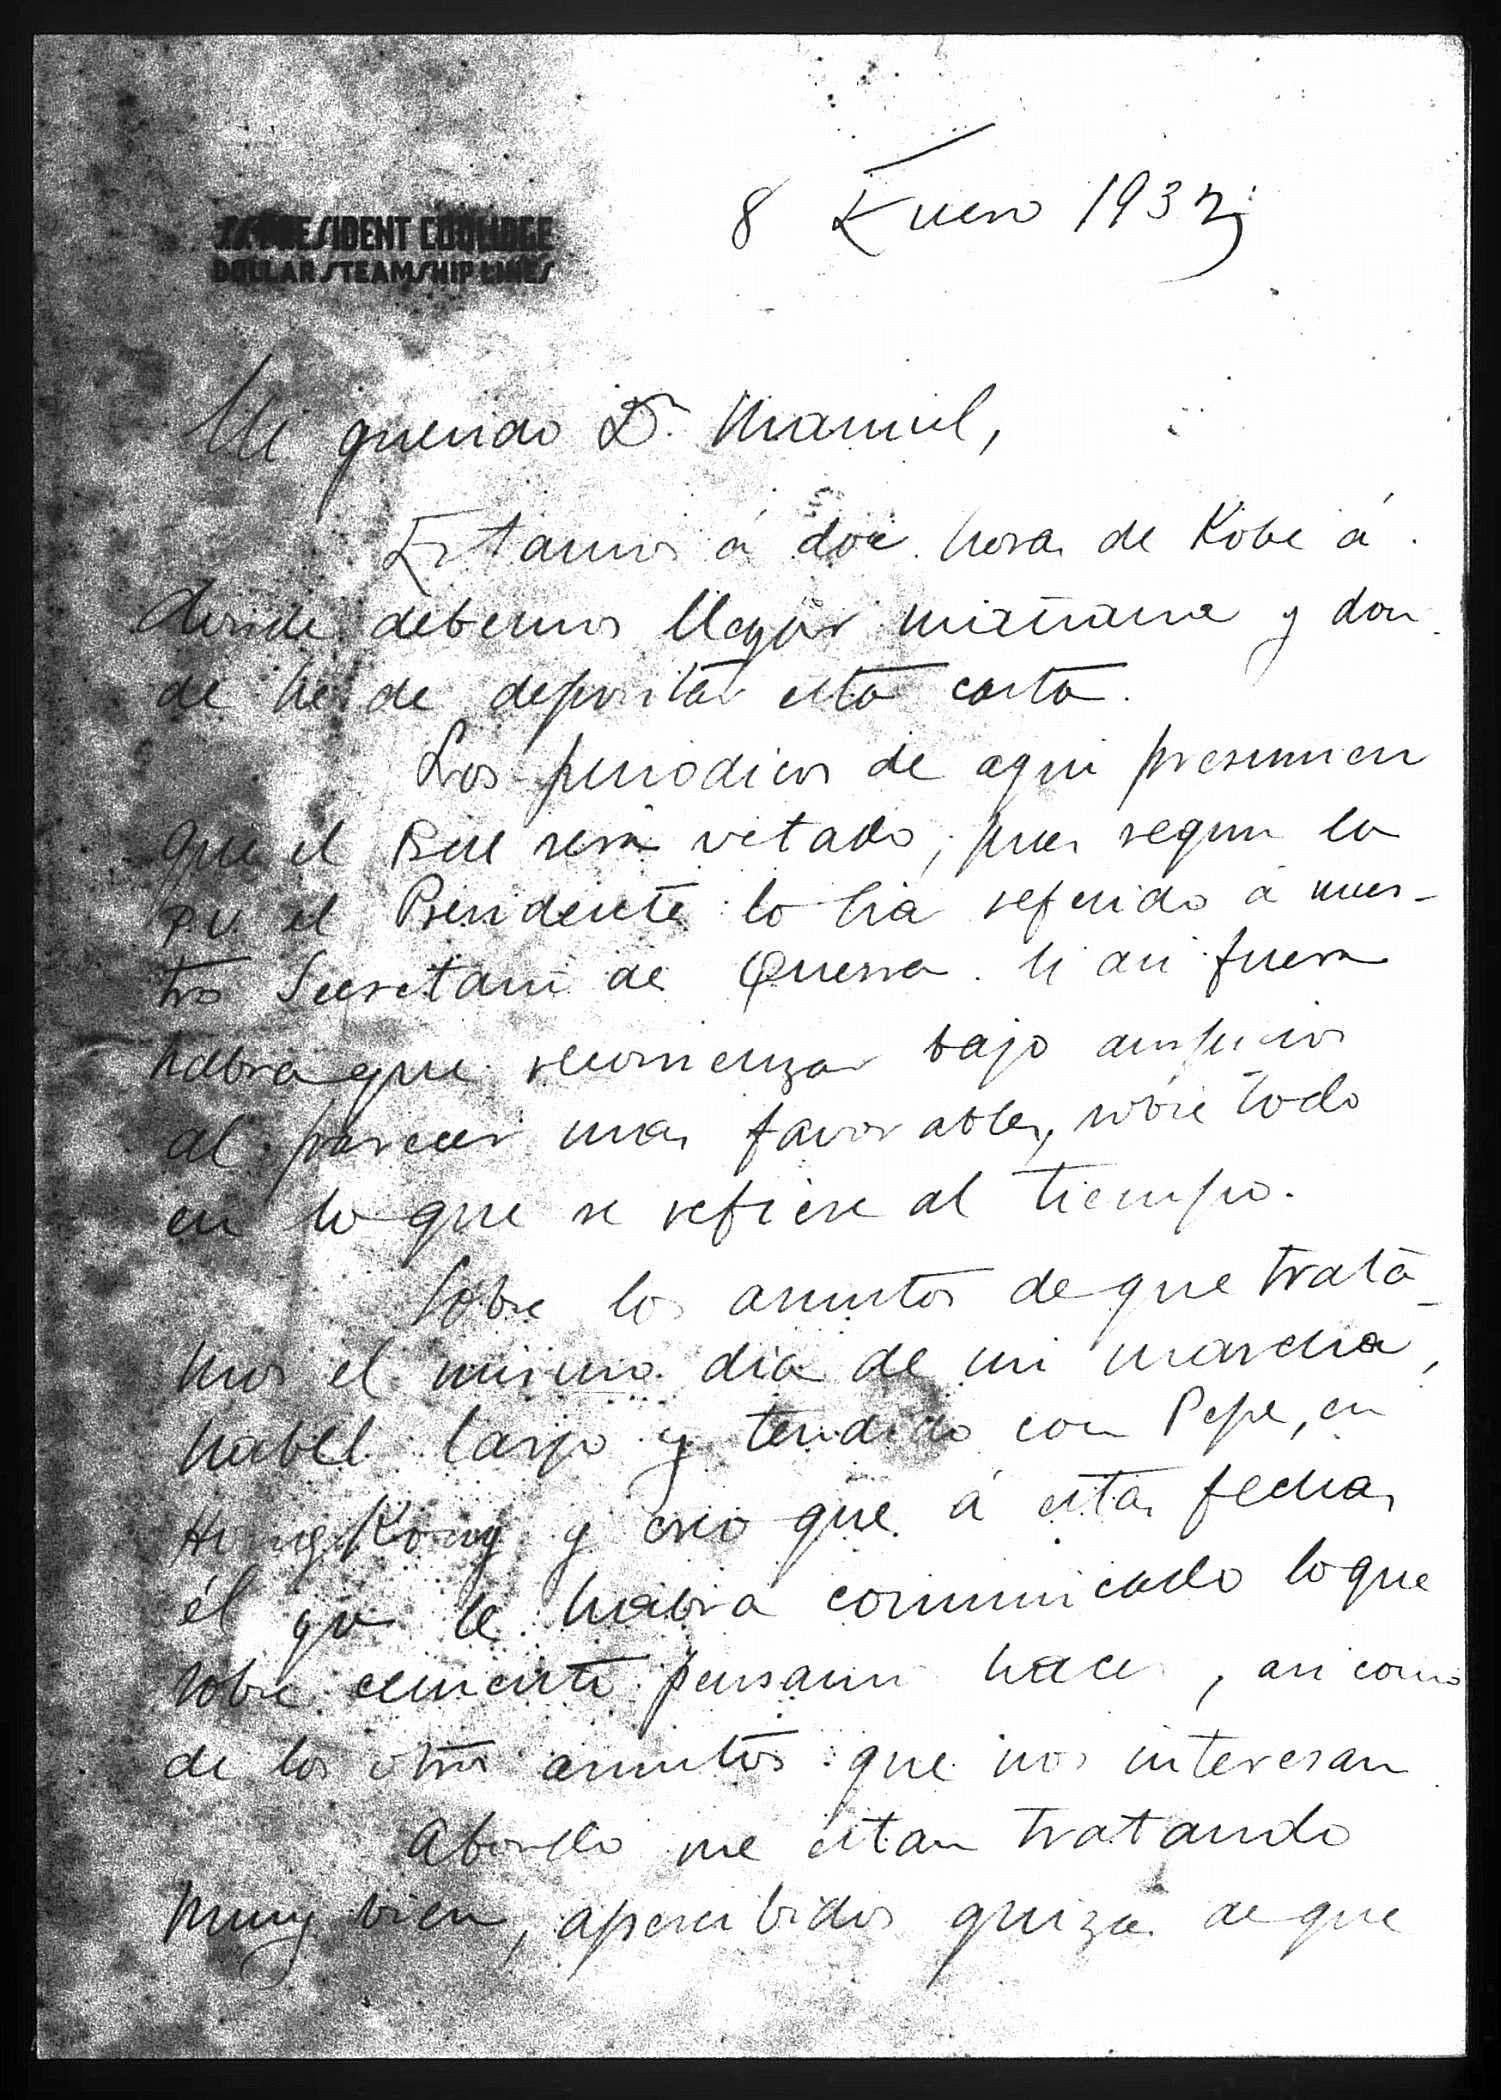 SS PRESIDENT COOLIDGE
DOLLAR STEAMSHIP LINES
8 Enero 193
Mi querido D. Manuel,
Estamos á doce horas de Kobe á
donde debemos llegar mañana y don
de he de depositar esta carta.
Los periodicos de aqui presumen
que el Bill será vetado, pues segun la
P.U. el Presidente lo há referido á nues-
tro Secretario de Guerra. Si asi fuera
habra que recomenzar bajo auspicios
al parecer mas favorables, sobre todo
en lo que se refiere al tiempo.
Sobre los asuntos de que trata-
mos el mismo dia de mi marcha,
hablé largo y tendido con Pepe, en
Hong Kong y creo que á estas fechas
él ya le habrá comunicado lo que
sobre cemento pensamos hacer, asi como
de los otros asuntos que nos interesan
Abordo me estan tratando
muy bien, apercibidos quizas de que